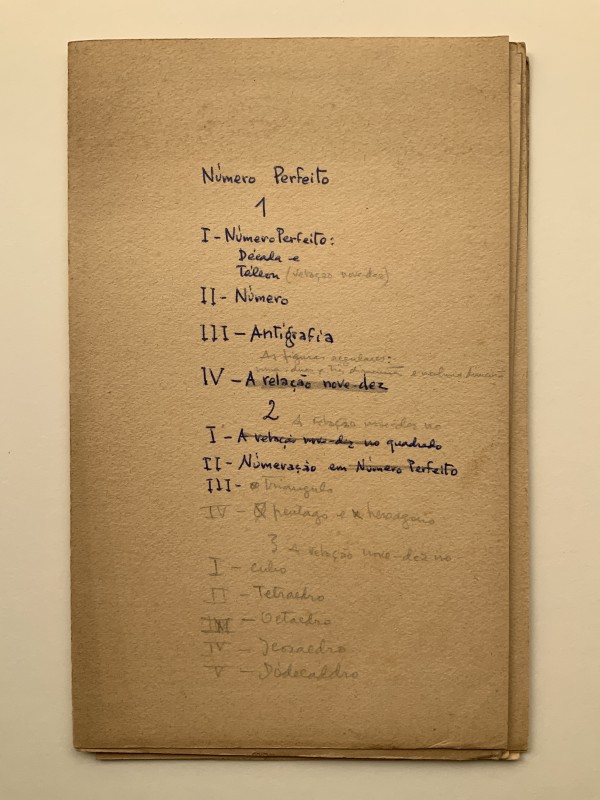 Número Perfeito
1
I - Número Perfeito:
Década e
Téleon (relação nove-dez)
II - Número
III - Antigrafia
As figuras angulares:
IV - A relação nove-dez
2 A relação nove-dez no
I - A relação nove-dez no quadrado
II - Númeração em Número Perfeito
III - o triangulo
IV - pentago e hexagono
3 A relação nove-dez no
I - cubo
II - Tetraedro
III - Octaedro
IV - Icosaedro
V - Dodecaedro